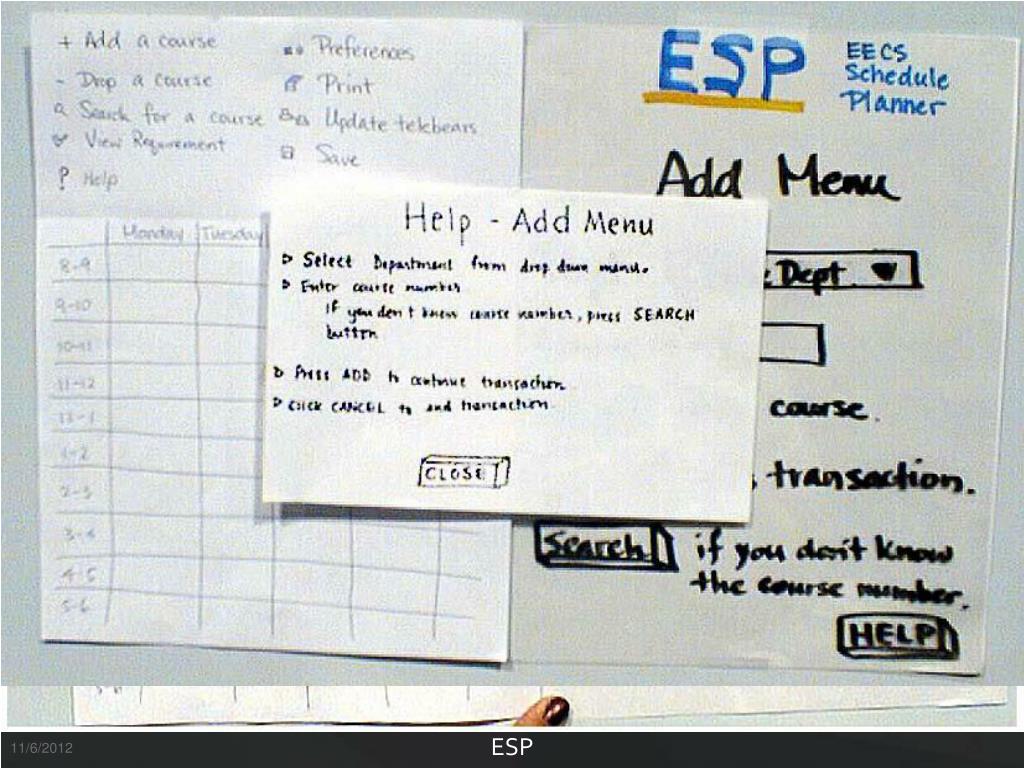 + Add a course
- Drop a course
Search for a course
View Requirement
? Help
Preferences
Print
Update telebears
Save
Monday Tuesday
8-9
9-10
10-11
11-12
12-1
1-2
2-3
3-4
4-5
5-6
Help - Add Menu
▷ Select Department from drop down menu.
▷ Enter course number
If you don't know course number, press SEARCH
button
▷ Press ADD to continue transaction
▷ Click CANCEL to end transaction
CLOSE
ESP
EECS
Schedule
Planner
Add Menu
Dept.
course.
transaction.
Search if you don't know
the course number.
HELP
11/6/2012
ESP